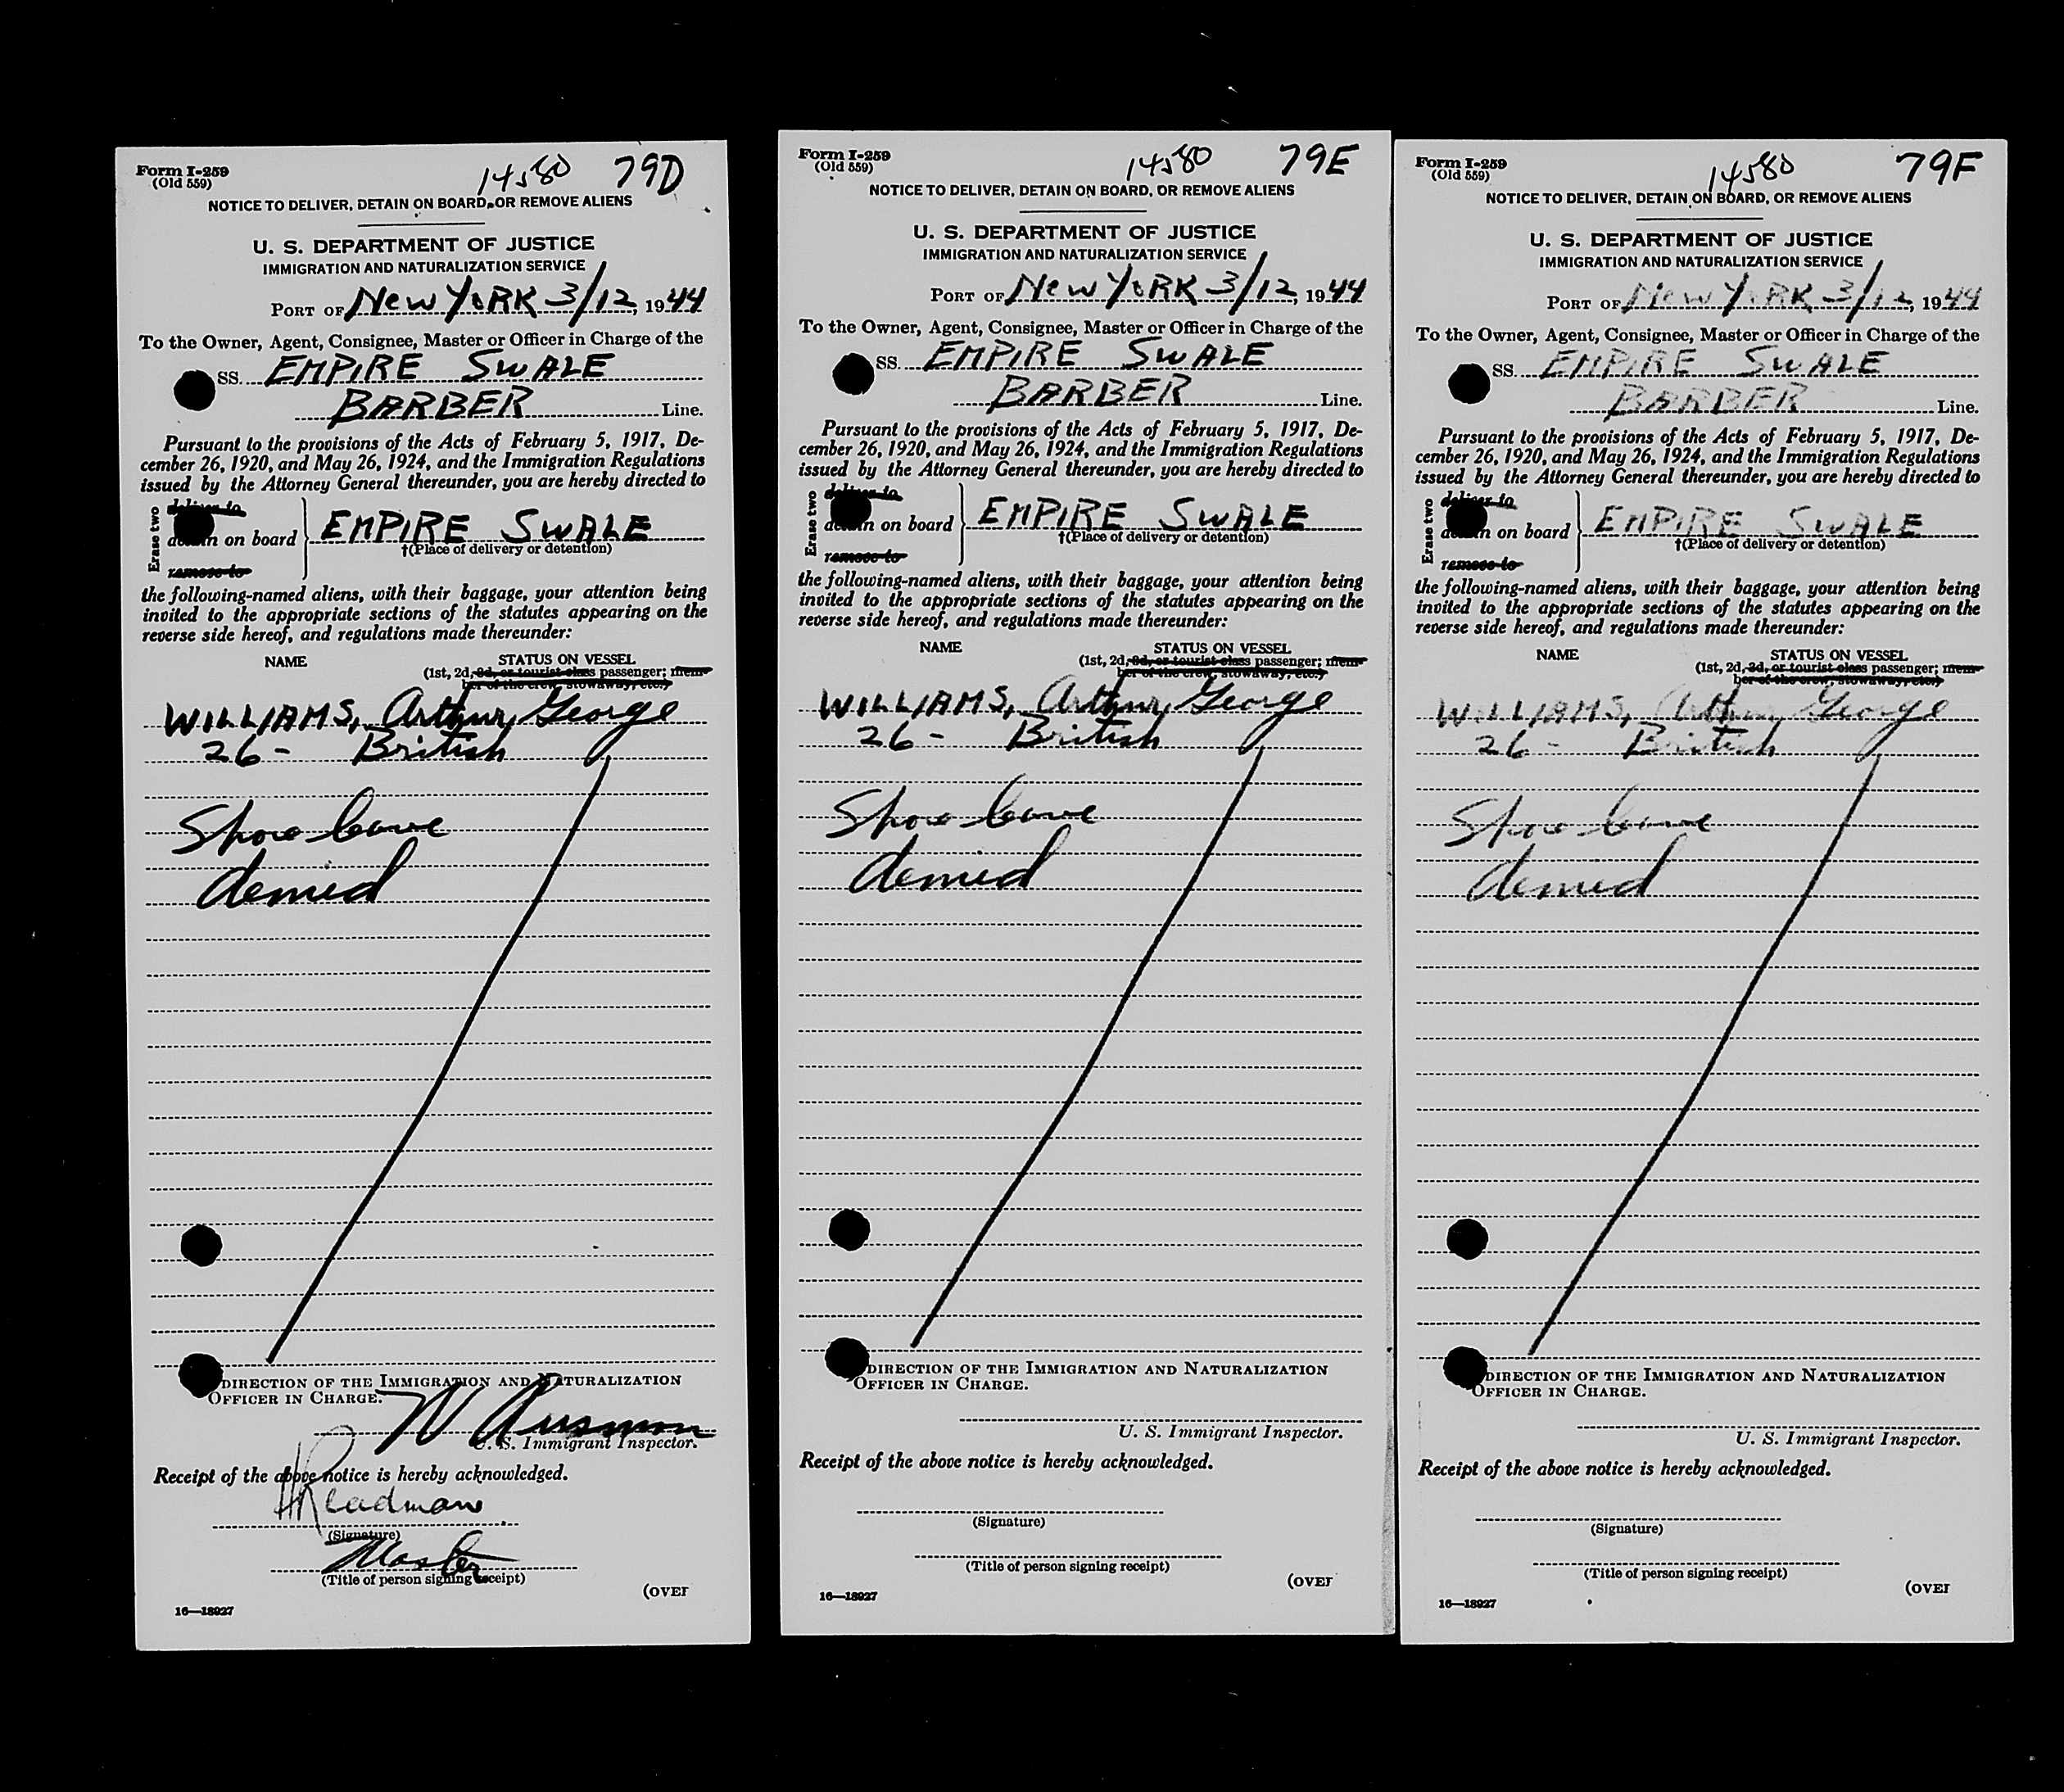 Form I-259
(Old 559)
14580 79D
NOTICE TO DELIVER, DETAIN ON BOARD, OR REMOVE ALIENS
U. S. DEPARTMENT OF JUSTICE
IMMIGRATION AND NATURALIZATION SERVICE
PORT OF New YoRK 3/12, 1944
To the Owner, Agent, Consignee, Master or Officer in Charge of the
SS. EMPIRE SWALE
BARBER Line.
Pursuant to the provisions of the Acts of February 5, 1917, De-
cember 26, 1920, and May 26, 1924, and the Immigration Regulations
issued by the Attorney General thereunder, you are hereby directed to
Erase two
deliver to
detain on board EMPIRE SWALE
†(Place of delivery or detention)
remove to
the following-named aliens, with their baggage, your attention being
invited to the appropriate sections of the statutes appearing on the
reverse side hereof, and regulations made thereunder:
NAME STATUS ON VESSEL
(1st, 2d, 3d, or tourist class passenger; mem-
ber of the crew, stowaway, etc.)
WILLIAMS, Arthur, George
26- British
Shore leave
denied
DIRECTION OF THE IMMIGRATION AND NATURALIZATION
OFFICER IN CHARGE.
U. S. Immigrant Inspector.
Receipt of the above notice is hereby acknowledged.
Readman
(Signature)
Master
(Title of person signing receipt)
(OVER
16—18927
Form I-259
(Old 559)
14580 79E
NOTICE TO DELIVER, DETAIN ON BOARD, OR REMOVE ALIENS
U. S. DEPARTMENT OF JUSTICE
IMMIGRATION AND NATURALIZATION SERVICE
PORT OF New YoRK 3/12, 1944
To the Owner, Agent, Consignee, Master or Officer in Charge of the
SS. EMPIRE SWALE
BARBER Line.
Pursuant to the provisions of the Acts of February 5, 1917, De-
cember 26, 1920, and May 26, 1924, and the Immigration Regulations
issued by the Attorney General thereunder, you are hereby directed to
Erase two
deliver to
detain on board EMPIRE SWALE
†(Place of delivery or detention)
remove to
the following-named aliens, with their baggage, your attention being
invited to the appropriate sections of the statutes appearing on the
reverse side hereof, and regulations made thereunder:
NAME STATUS ON VESSEL
(1st, 2d, 3d, or tourist class passenger; mem-
ber of the crew, stowaway, etc.)
WILLIAMS, Arthur, George
26- British
Shore leave
denied
DIRECTION OF THE IMMIGRATION AND NATURALIZATION
OFFICER IN CHARGE.
U. S. Immigrant Inspector.
Receipt of the above notice is hereby acknowledged.
(Signature)
(Title of person signing receipt)
(OVER
16—18927
Form I-259
(Old 559)
14580 79F
NOTICE TO DELIVER, DETAIN ON BOARD, OR REMOVE ALIENS
U. S. DEPARTMENT OF JUSTICE
IMMIGRATION AND NATURALIZATION SERVICE
PORT OF New YoRK 3/12, 1944
To the Owner, Agent, Consignee, Master or Officer in Charge of the
SS. EMPIRE SWALE
BARBER Line.
Pursuant to the provisions of the Acts of February 5, 1917, De-
cember 26, 1920, and May 26, 1924, and the Immigration Regulations
issued by the Attorney General thereunder, you are hereby directed to
Erase two
deliver to
detain on board EMPIRE SWALE
†(Place of delivery or detention)
remove to
the following-named aliens, with their baggage, your attention being
invited to the appropriate sections of the statutes appearing on the
reverse side hereof, and regulations made thereunder:
NAME STATUS ON VESSEL
(1st, 2d, 3d, or tourist class passenger; mem-
ber of the crew, stowaway, etc.)
WILLIAMS, Arthur, George
26- British
Shore leave
denied
DIRECTION OF THE IMMIGRATION AND NATURALIZATION
OFFICER IN CHARGE.
U. S. Immigrant Inspector.
Receipt of the above notice is hereby acknowledged.
(Signature)
(Title of person signing receipt)
(OVER
16—18927